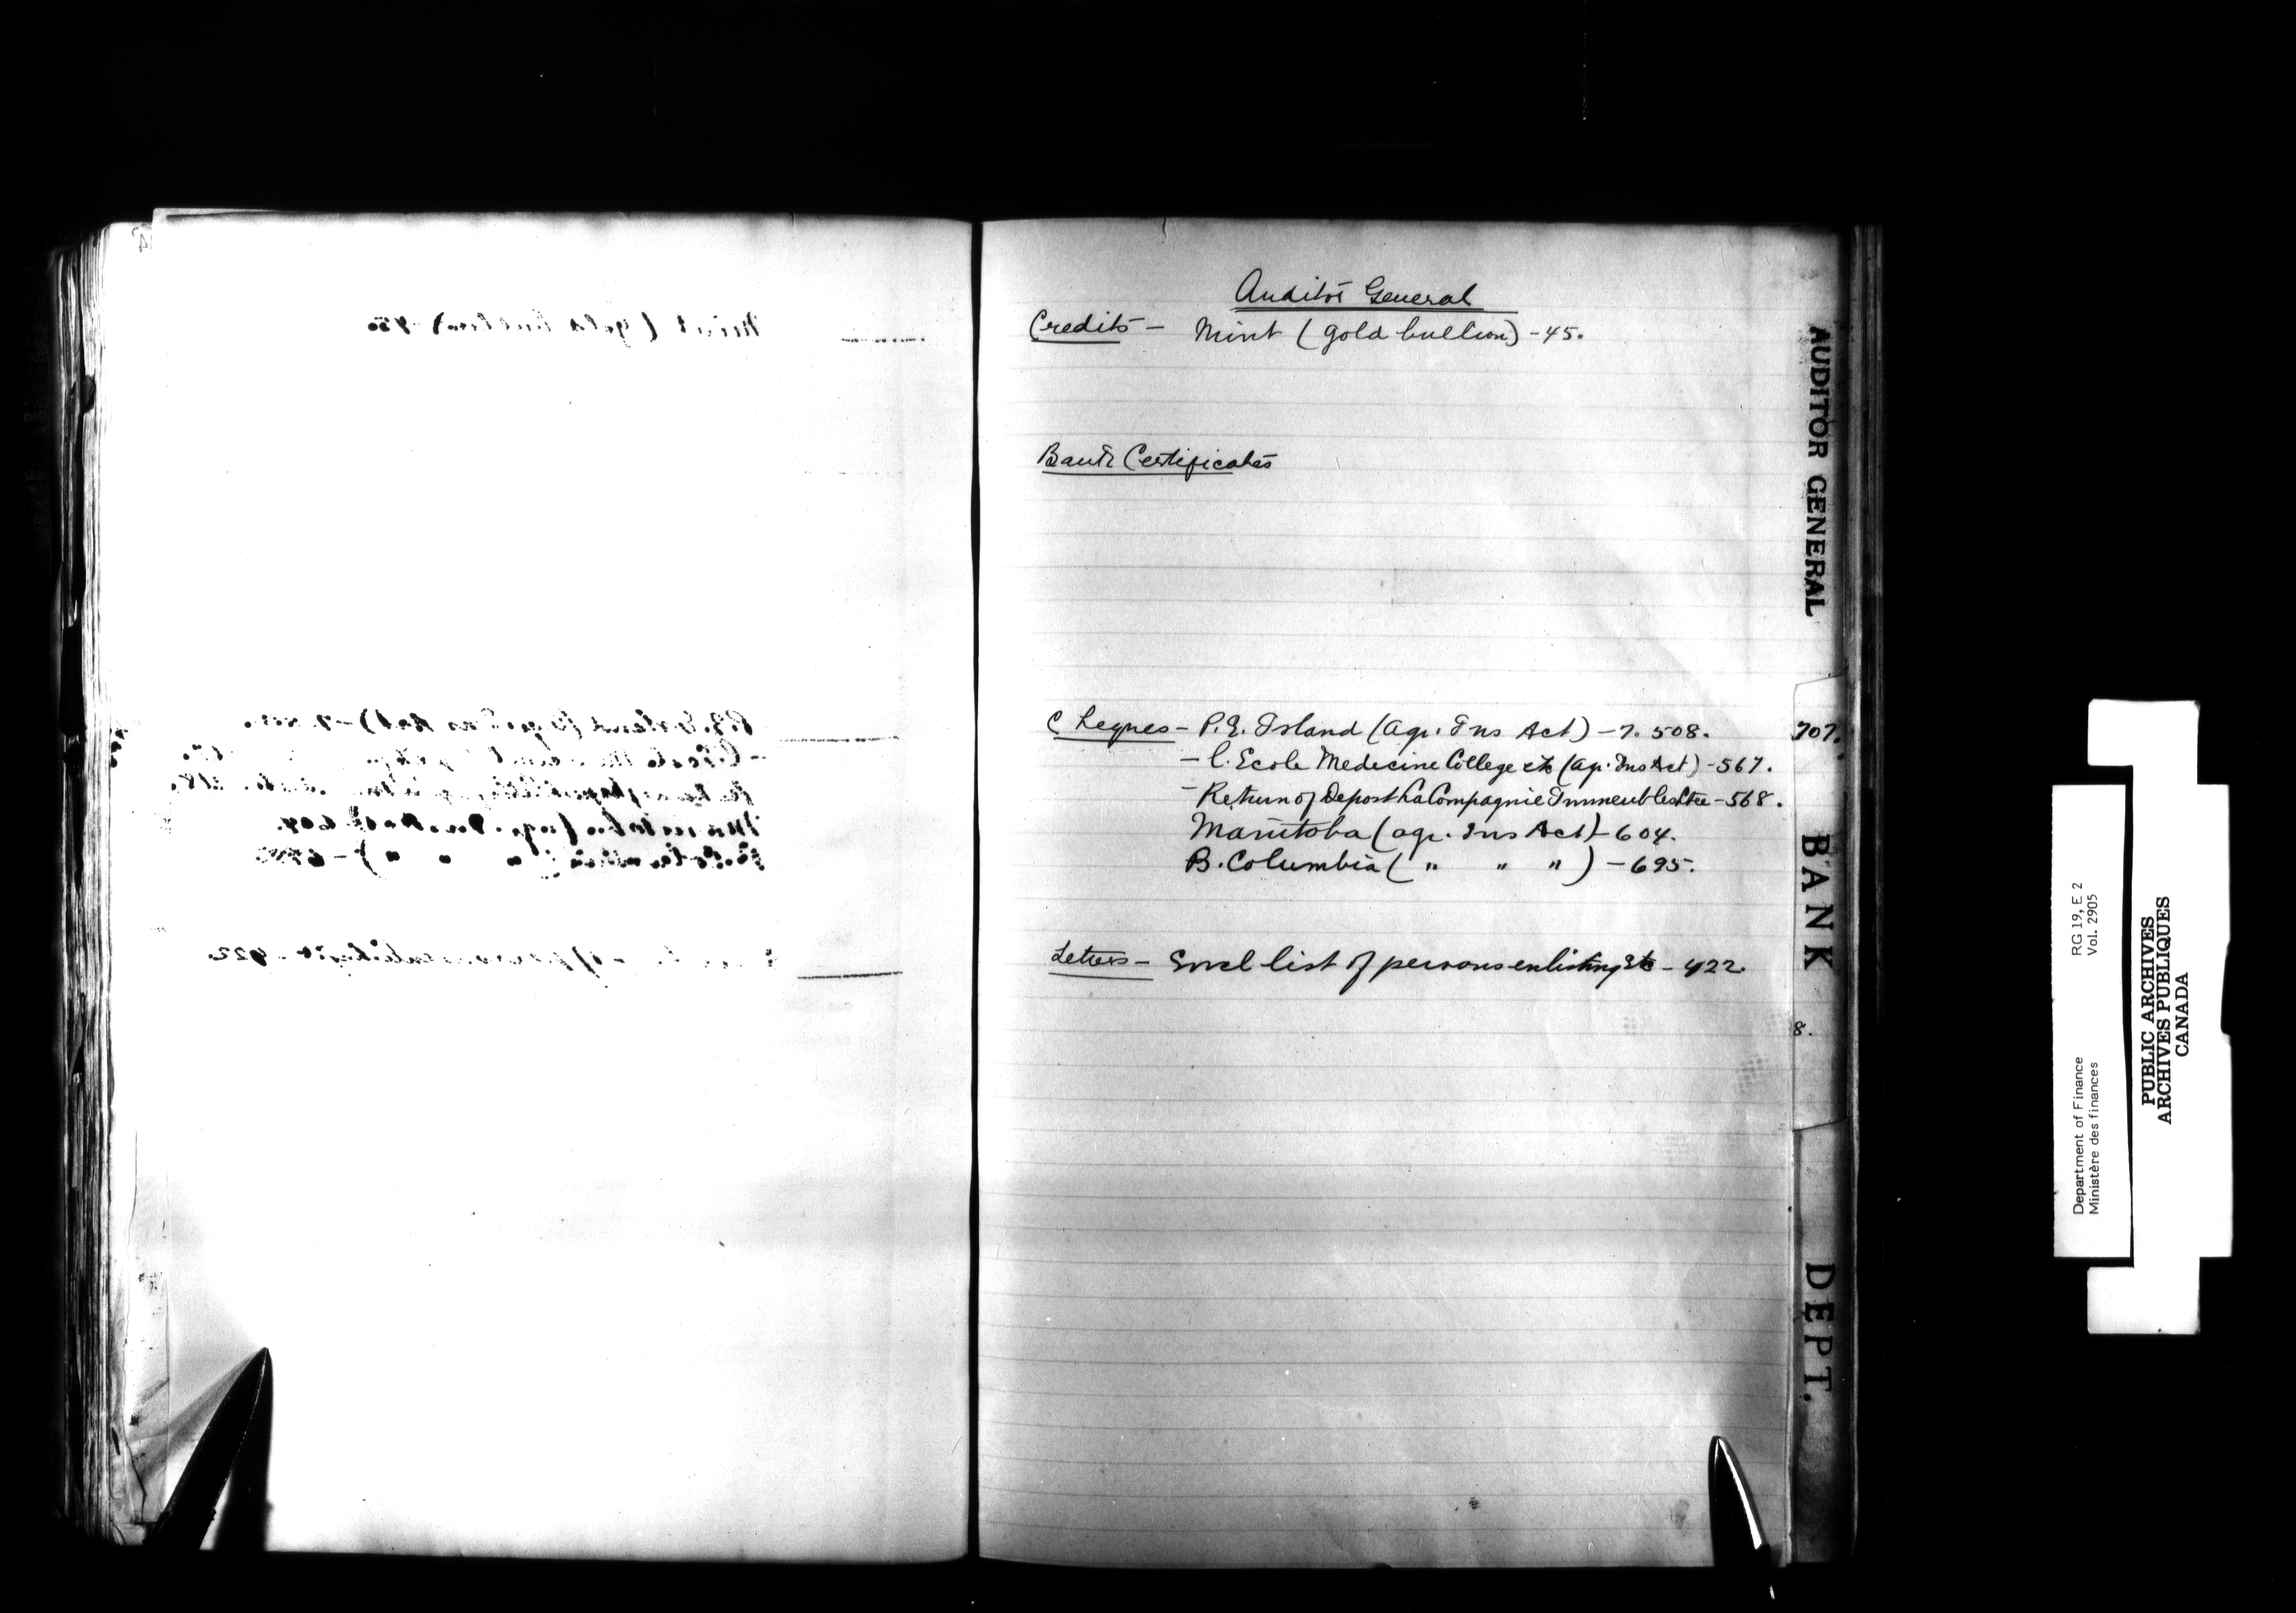 Auditor General
Credits - Mint (gold bullion) - 45.
Bank Certificates
Cheques - P.E. Island (Agr. Ins Act) - 7. 508.
- l'Ecole Medecine College etc (Ag. Ins Act) - 567.
- Return of Deposit La Compagnie Immeubles Ltee - 568.
Manitoba (agr. Ins Act) - 604.
B. Columbia ( " " " ) - 695.
Letters - Encl list of persons enlisting Etc - 422.
AUDITOR GENERAL
707.
BANK
8.
DEPT.
RG 19, E 2
Vol. 2905
Department of Finance
Ministère des finances
PUBLIC ARCHIVES
ARCHIVES PUBLIQUES
CANADA